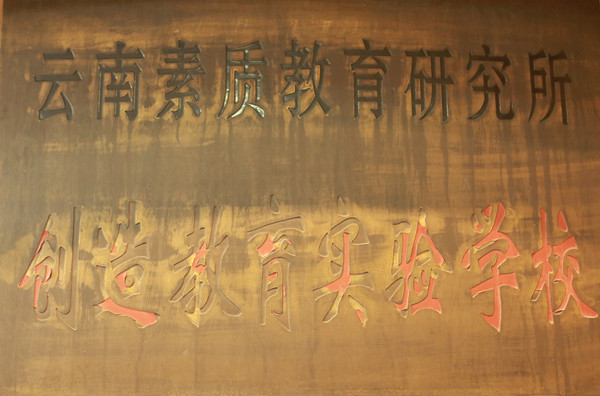 云南素质教育研究所
创造教育实验学校